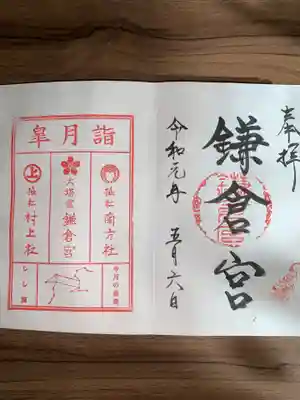 奉拝
鎌倉宮
令和元年
五月六日
皐月詣
摂社 南方社
大塔宮 鎌倉宮
摂社 村上社
上
今月の星座
しし座